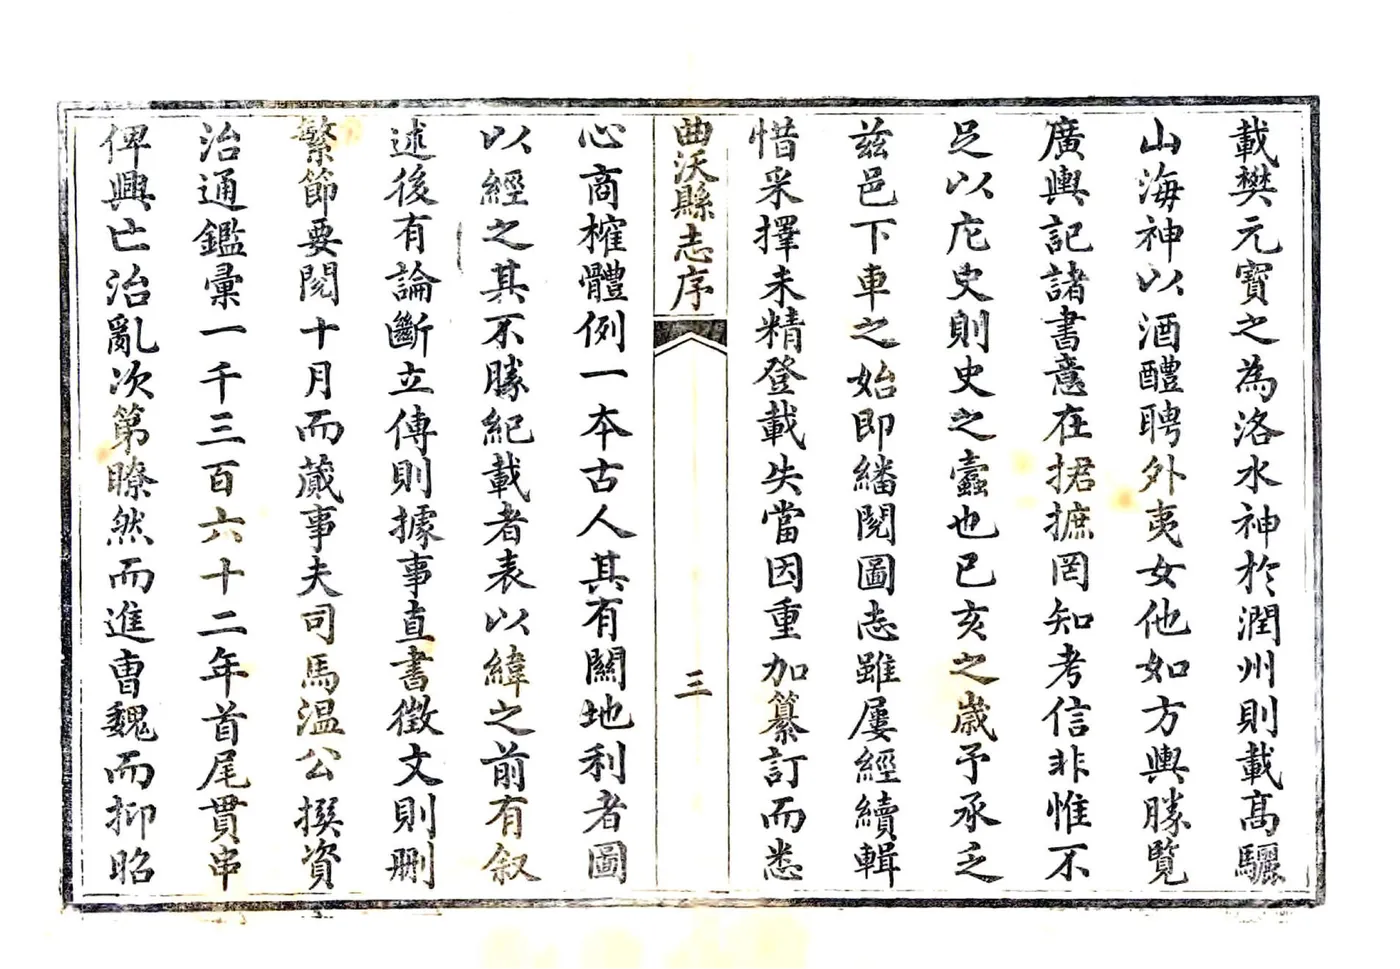 載樊元寳之為洛水神於潤州則載髙驪
山海神以酒醴聘外夷女他如方輿勝覽
廣輿記諸書意在捃摭罔知考信非惟不
足以庀史則史之蠧也己亥之歲予承乏
兹邑下車之始即繙閱圖志雖屢經續輯
惜采擇未精登載失當因重加纂訂而悉
曲沃縣志序
三
心商榷體例一本古人其有關地利者圖
以經之其不勝紀載者表以緯之前有叙
述後有論斷立傳則據事直書徵文則刪
繁節要閱十月而蕆事夫司馬温公撰資
治通鑑彙一千三百六十二年首尾貫串
俾興亡治亂次第瞭然而進曹魏而抑昭